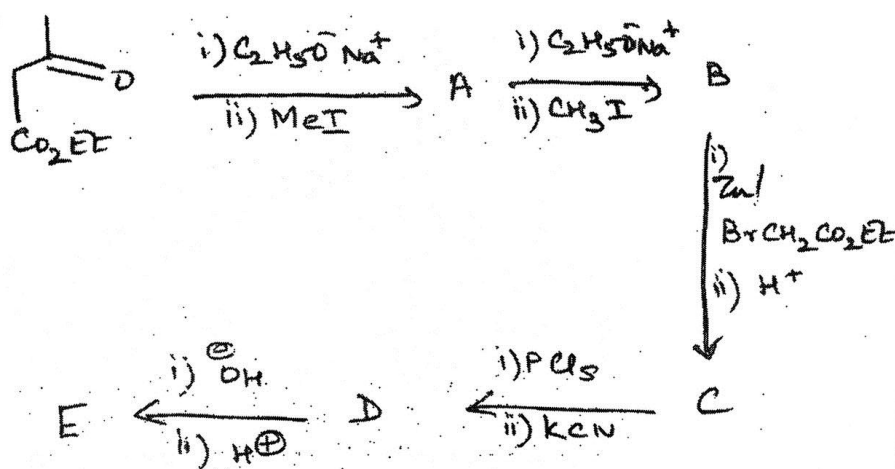 O
CO₂Et
i) C₂H₅O⁻Na⁺
ii) MeI
A
i) C₂H₅O⁻Na⁺
ii) CH₃I
B
i)
Zn/
BrCH₂CO₂Et
ii) H⁺
C
i) PCl₅
ii) KCN
D
i) ⊖OH
ii) H⊕
E